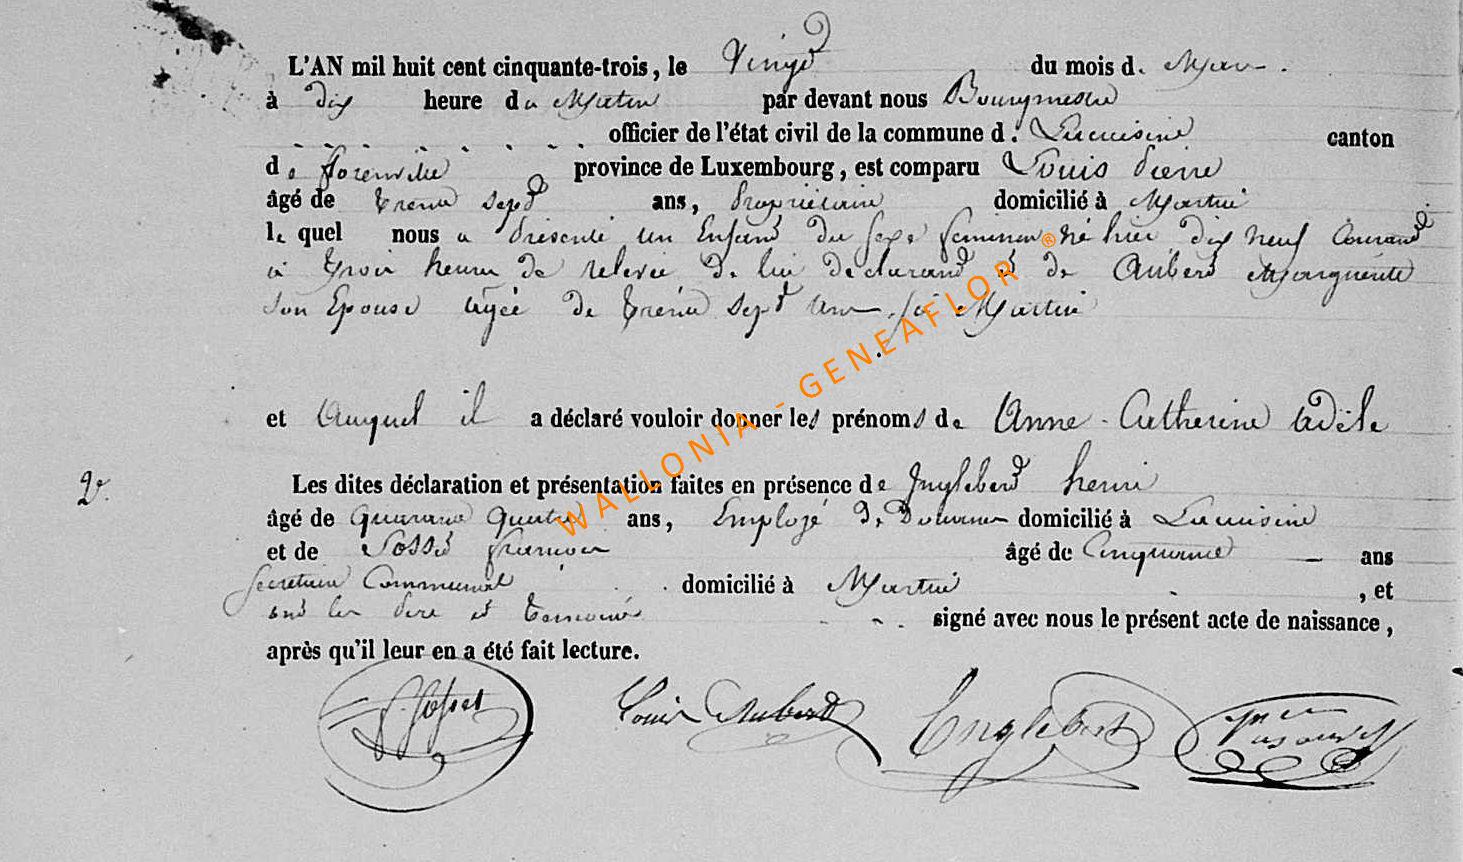 L'AN mil huit cent cinquante-trois, le Vingt du mois de Mars
à dix heure du Matin par devant nous Bourgmestre
officier de l'état civil de la commune de Lacuisine canton
de florenville province de Luxembourg, est comparu Louis Pierre
âgé de trente sept ans, Propriétaire domicilié à Martué
le quel nous a présenté un Enfant du sexe feminin né hier dix neuf Courant
à trois heures de relevée de lui déclarant et de Aubert Marguerite
son Epouse agée de trente sept ans Martué
et Auquel il a déclaré vouloir donner les prénoms de Anne - Catherine Adèle
2e.
Les dites déclaration et présentation faites en présence de Inglebert henri
âgé de quarante quatre ans, Employé de Douanes domicilié à Lacuisine
et de Josset françois âgé de Cinquante ans
secrétaire Communal domicilié à Martué, et
ont les Père et temoins signé avec nous le présent acte de naissance,
après qu'il leur en a été fait lecture.
f. Josset Louis Aubert Englebert
WALLONIA - GENEAFLOR ®